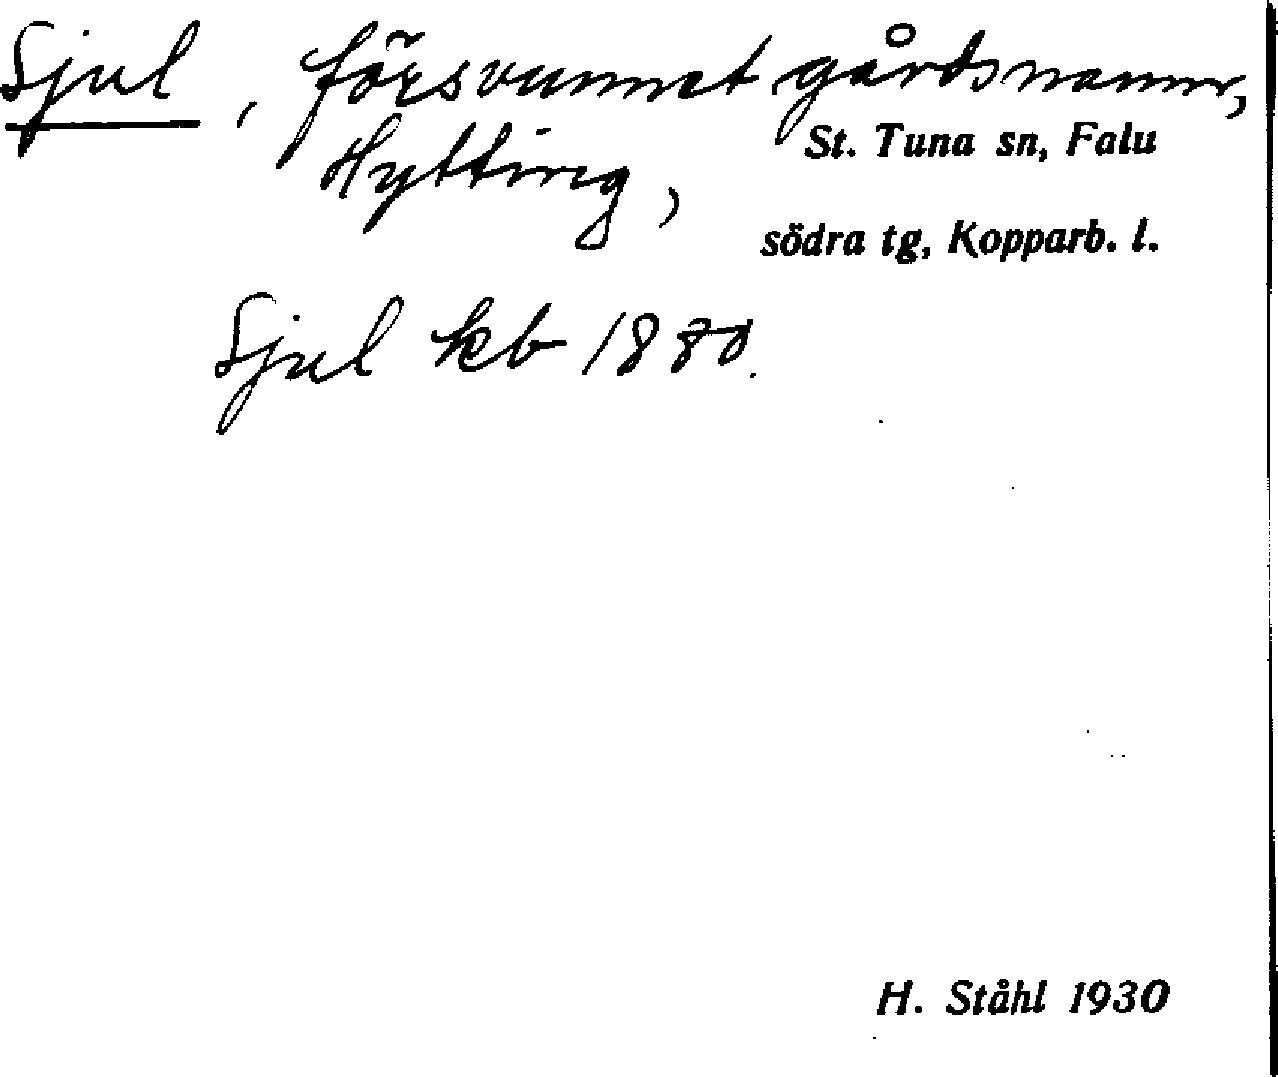 Sjul, försvunnet gårdsnamn,
Hytting,
St. Tuna sn, Falu
södra tg, Kopparb. l.
Sjul kb 1880.
H. Ståhl 1930